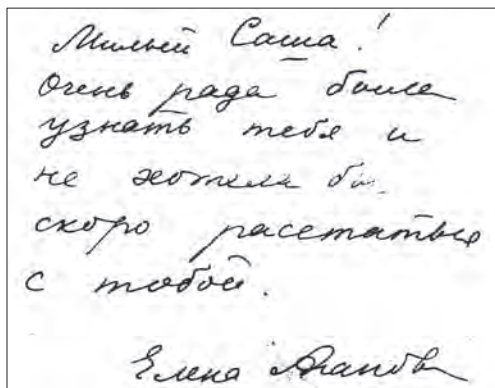 Милый Саша!
Очень рада была
узнать тебя и
не хотела бы
скоро расстаться
с тобой.
Елена